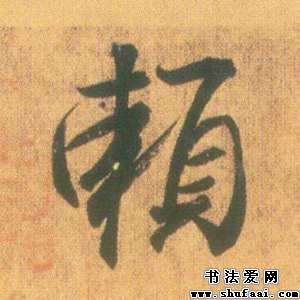 頼
书法爱网
www.shufaai.com